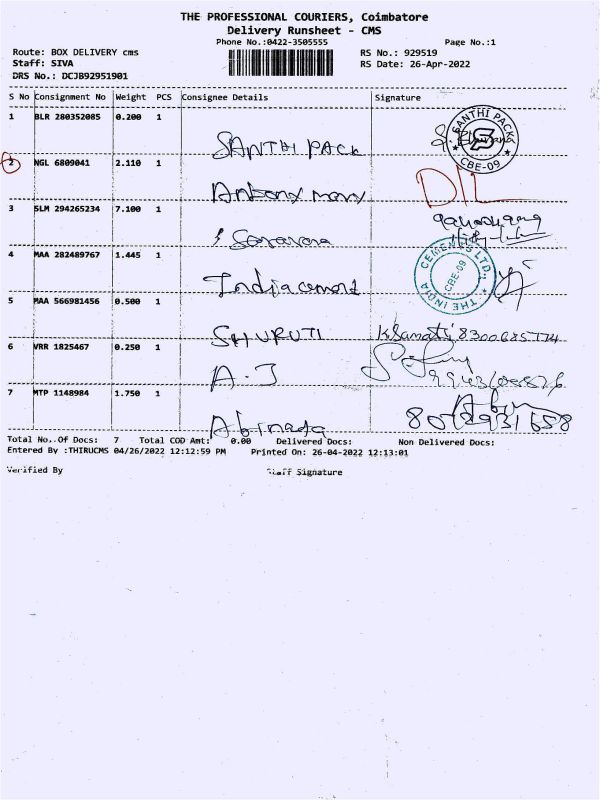 THE PROFESSIONAL COURIERS, Coimbatore
Delivery Runsheet - CMS
Phone No.:0422-3505555 Page No.:1
Route: BOX DELIVERY cms RS No.: 929519
Staff: SIVA RS Date: 26-Apr-2022
DRS No.: DCJB92951901
S No Consignment No Weight PCS Consignee Details Signature
1 BLR 280352085 0.200 1
SANTHI PACK SANTHI PACK CBE-09
2 NGL 6809041 2.110 1
Antony mary
3 SLM 294265234 7.100 1
Saravana
4 MAA 282489767 1.445 1
India cement THE INDIA CEMENTS LTD., CBE-09
5 MAA 566981456 0.500 1
SHURUTI
6 VRR 1825467 0.250 1
A.J
7 MTP 1148984 1.750 1
Abinaya
Total No. Of Docs: 7 Total COD Amt: 0.00 Delivered Docs: Non Delivered Docs:
Entered By :THIRUCMS 04/26/2022 12:12:59 PM Printed On: 26-04-2022 12:13:01
Verified By Staff Signature